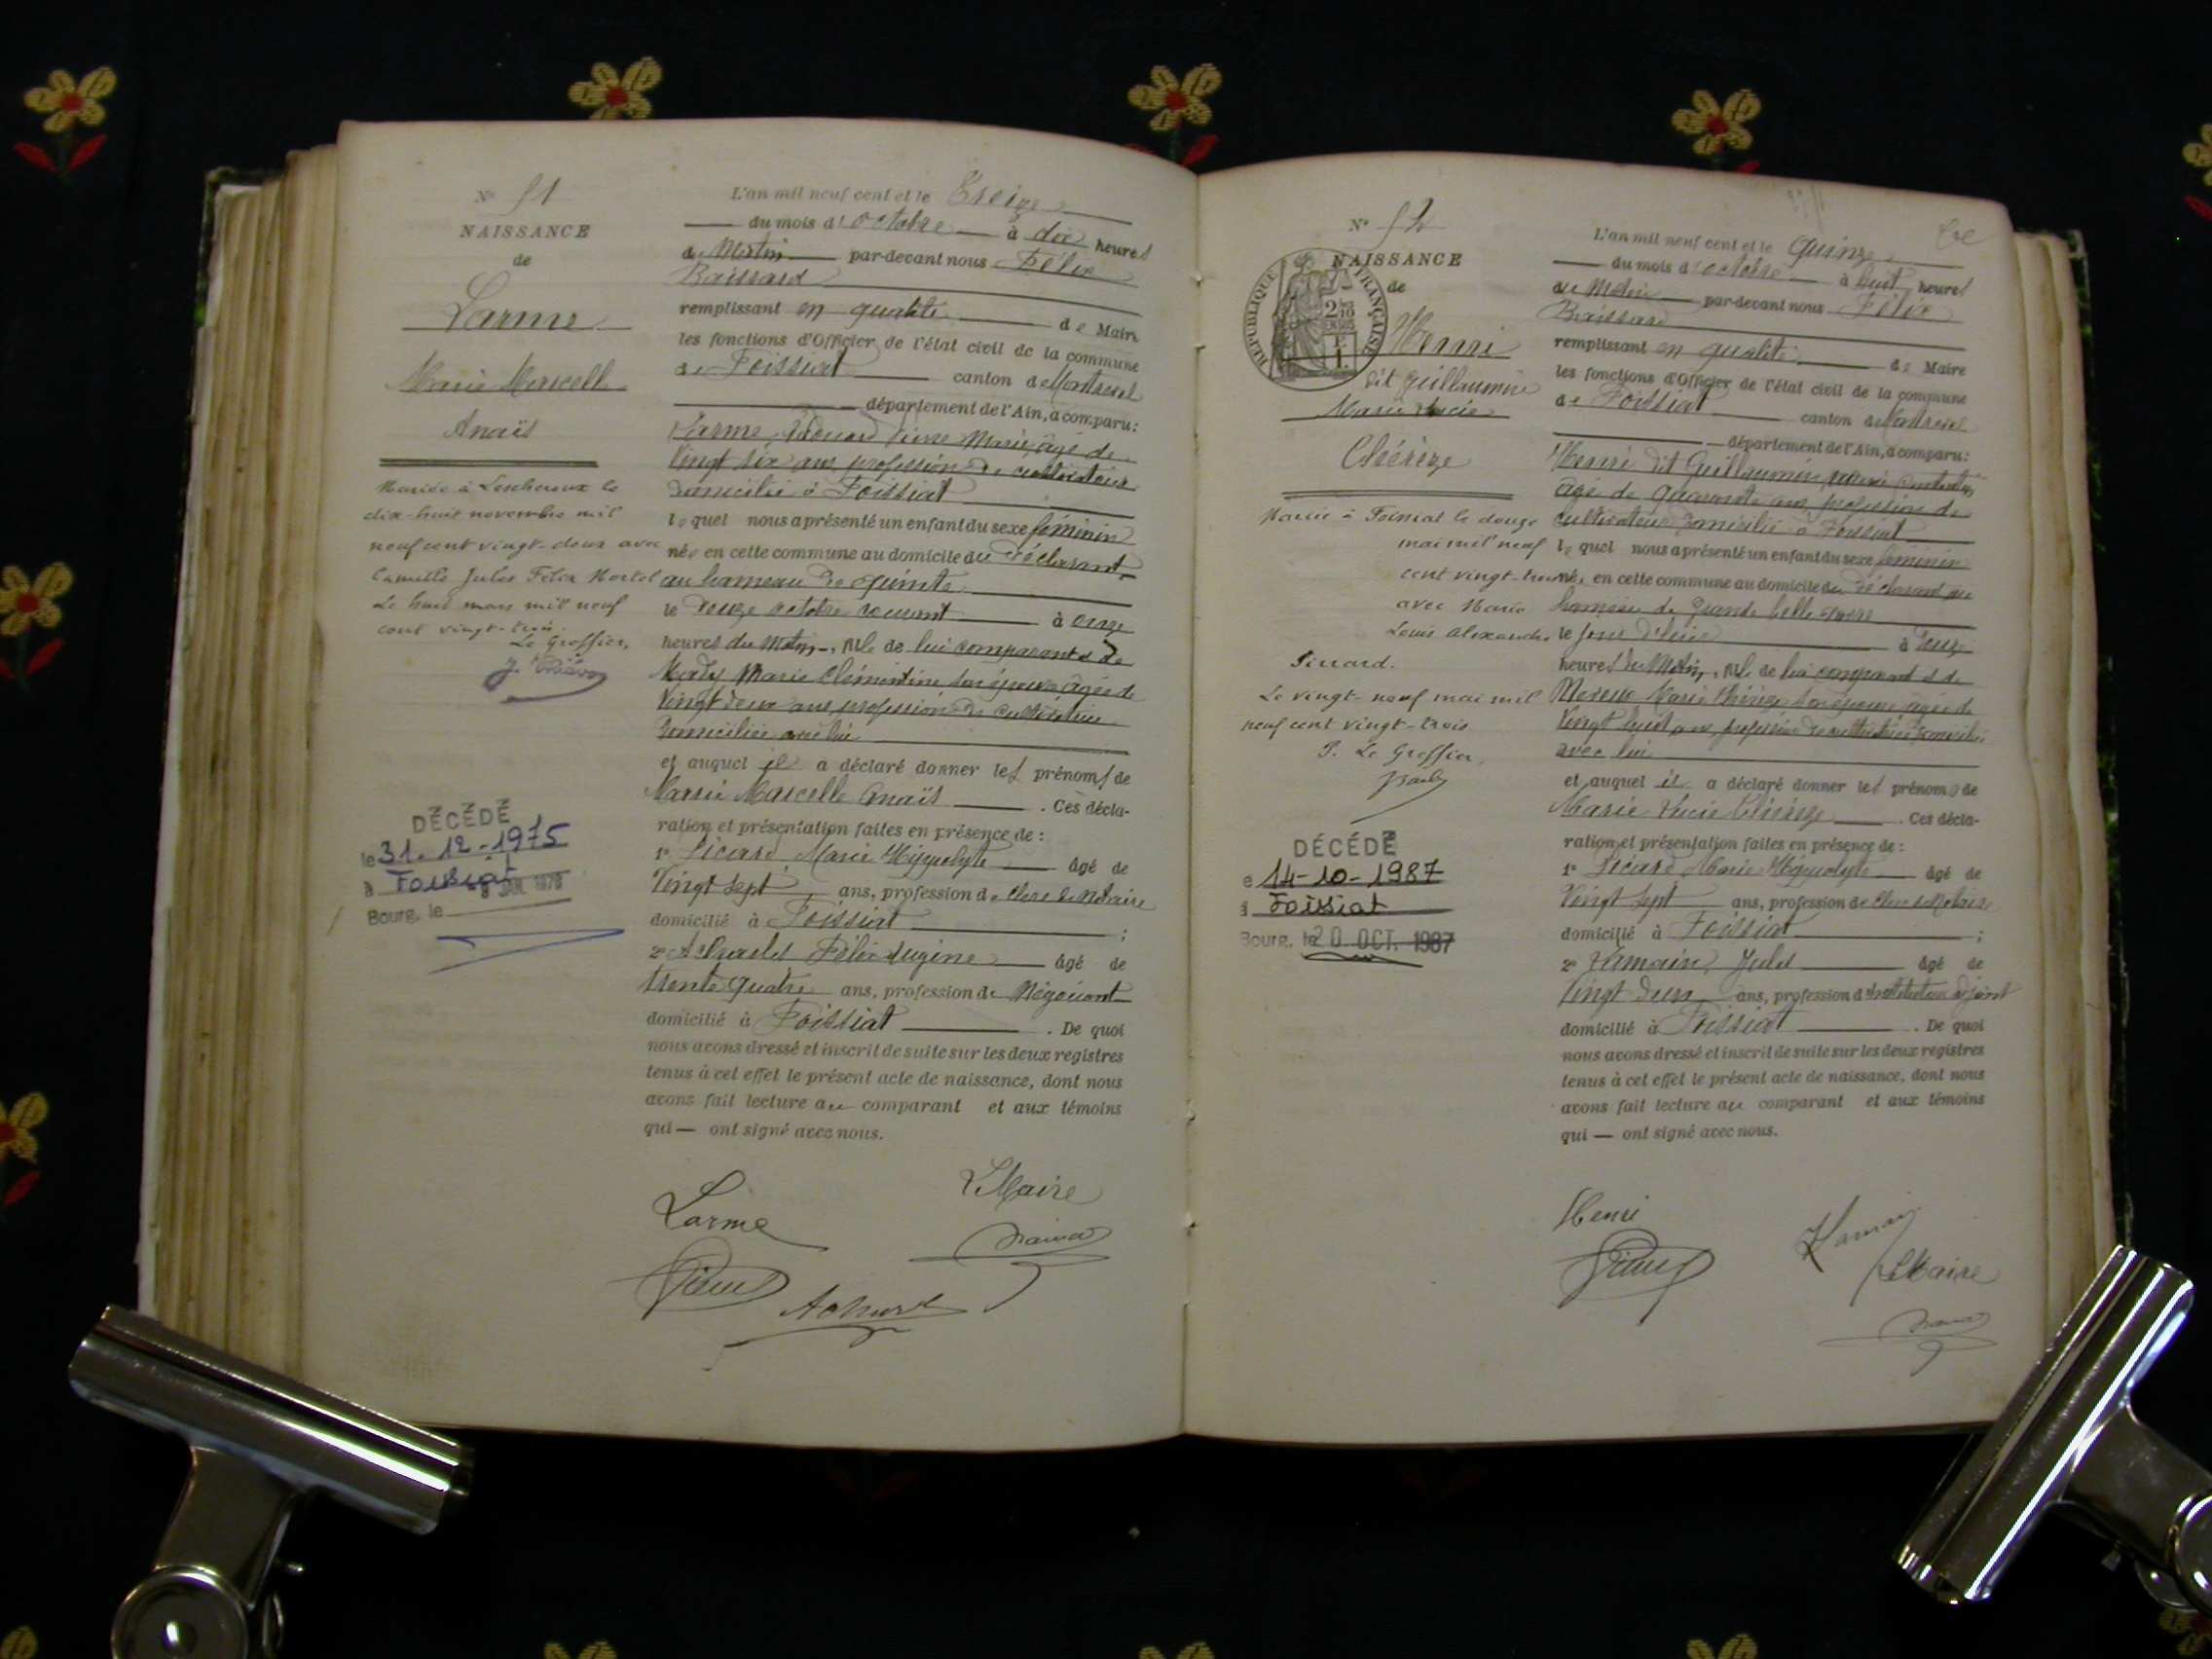 N° 51
NAISSANCE
de
Larme
Marie Marcelle
Anaïs
Mariée à Lescheroux le
dix-huit novembre mil
neuf cent vingt-deux avec
Camille Jules Félix Mortel
Le huit mars mil neuf
cent vingt-trois.
Le Greffier,
DÉCÉDÉ
le 31-12-1975
à Foissiat
Bourg, le
L'an mil neuf cent et le Treize
du mois d'octobre à dix heures
du Matin par-devant nous Félix
remplissant en qualité de Maire
les fonctions d'Officier de l'état civil de la commune
de Foissiat canton de Montrevel
département de l'Ain, a comparu:
Larme, Edouard Pierre Marie, âgé de
Vingt six ans, profession de cultivateur
domicilié à Foissiat
lequel nous a présenté un enfant du sexe féminin
née en cette commune au domicile du déclarant
au hameau de
le Douze octobre courant à onze
heures du Matin, née de lui comparant et de
Marie Clémentine son épouse âgée de
Vingt deux ans, profession de cultivatrice
domiciliée avec lui
et auquel il a déclaré donner les prénoms de
Marie Marcelle Anaïs. Ces décla-
ration et présentation faites en présence de :
1° Sicard Marie Hippolyte âgé de
Vingt sept ans, profession de Clerc de Notaire
domicilié à Foissiat ;
2° Félix Eugène âgé de
trente quatre ans, profession de Négociant
domicilié à Foissiat. De quoi
nous avons dressé et inscrit de suite sur les deux registres
tenus à cet effet le présent acte de naissance, dont nous
avons fait lecture au comparant et aux témoins
qui — ont signé avec nous.
Larme
Le Maire
N° 52
NAISSANCE
de
RÉPUBLIQUE FRANÇAISE
Henri
dit Guillaumin
Marie Lucie
Thérèze
Mariée à Foissiat le douze
mai mil neuf
cent vingt-trois
avec Marie
Louis Alexandre
Le vingt-neuf mai mil
neuf cent vingt-trois
P. Le Greffier,
DÉCÉDÉ
le 14-10-1987
à Foissiat
Bourg, le 20 OCT. 1987
L'an mil neuf cent et le Quinze
du mois d'octobre à huit heures
du Matin par-devant nous Félix
remplissant en qualité de Maire
les fonctions d'Officier de l'état civil de la commune
de Foissiat canton de Montrevel
département de l'Ain, a comparu:
Henri dit Guillaumin
âgé de quarante ans, profession de
Cultivateur domicilié à Foissiat
lequel nous a présenté un enfant du sexe féminin
née en cette commune au domicile du déclarant au
hameau de Grande
le jour d'hier à Douze
heures du Matin, née de lui comparant et de
Marie Thérèze son épouse âgée de
Vingt huit ans, profession de cultivatrice domiciliée
avec lui
et auquel il a déclaré donner les prénoms de
Marie Lucie Thérèze. Ces décla-
ration et présentation faites en présence de :
1° Sicard Marie Hippolyte âgé de
Vingt sept ans, profession de Clerc de Notaire
domicilié à Foissiat ;
2° Jules âgé de
Vingt deux ans, profession d'Instituteur adjoint
domicilié à Foissiat. De quoi
nous avons dressé et inscrit de suite sur les deux registres
tenus à cet effet le présent acte de naissance, dont nous
avons fait lecture au comparant et aux témoins
qui — ont signé avec nous.
Henri
Le Maire